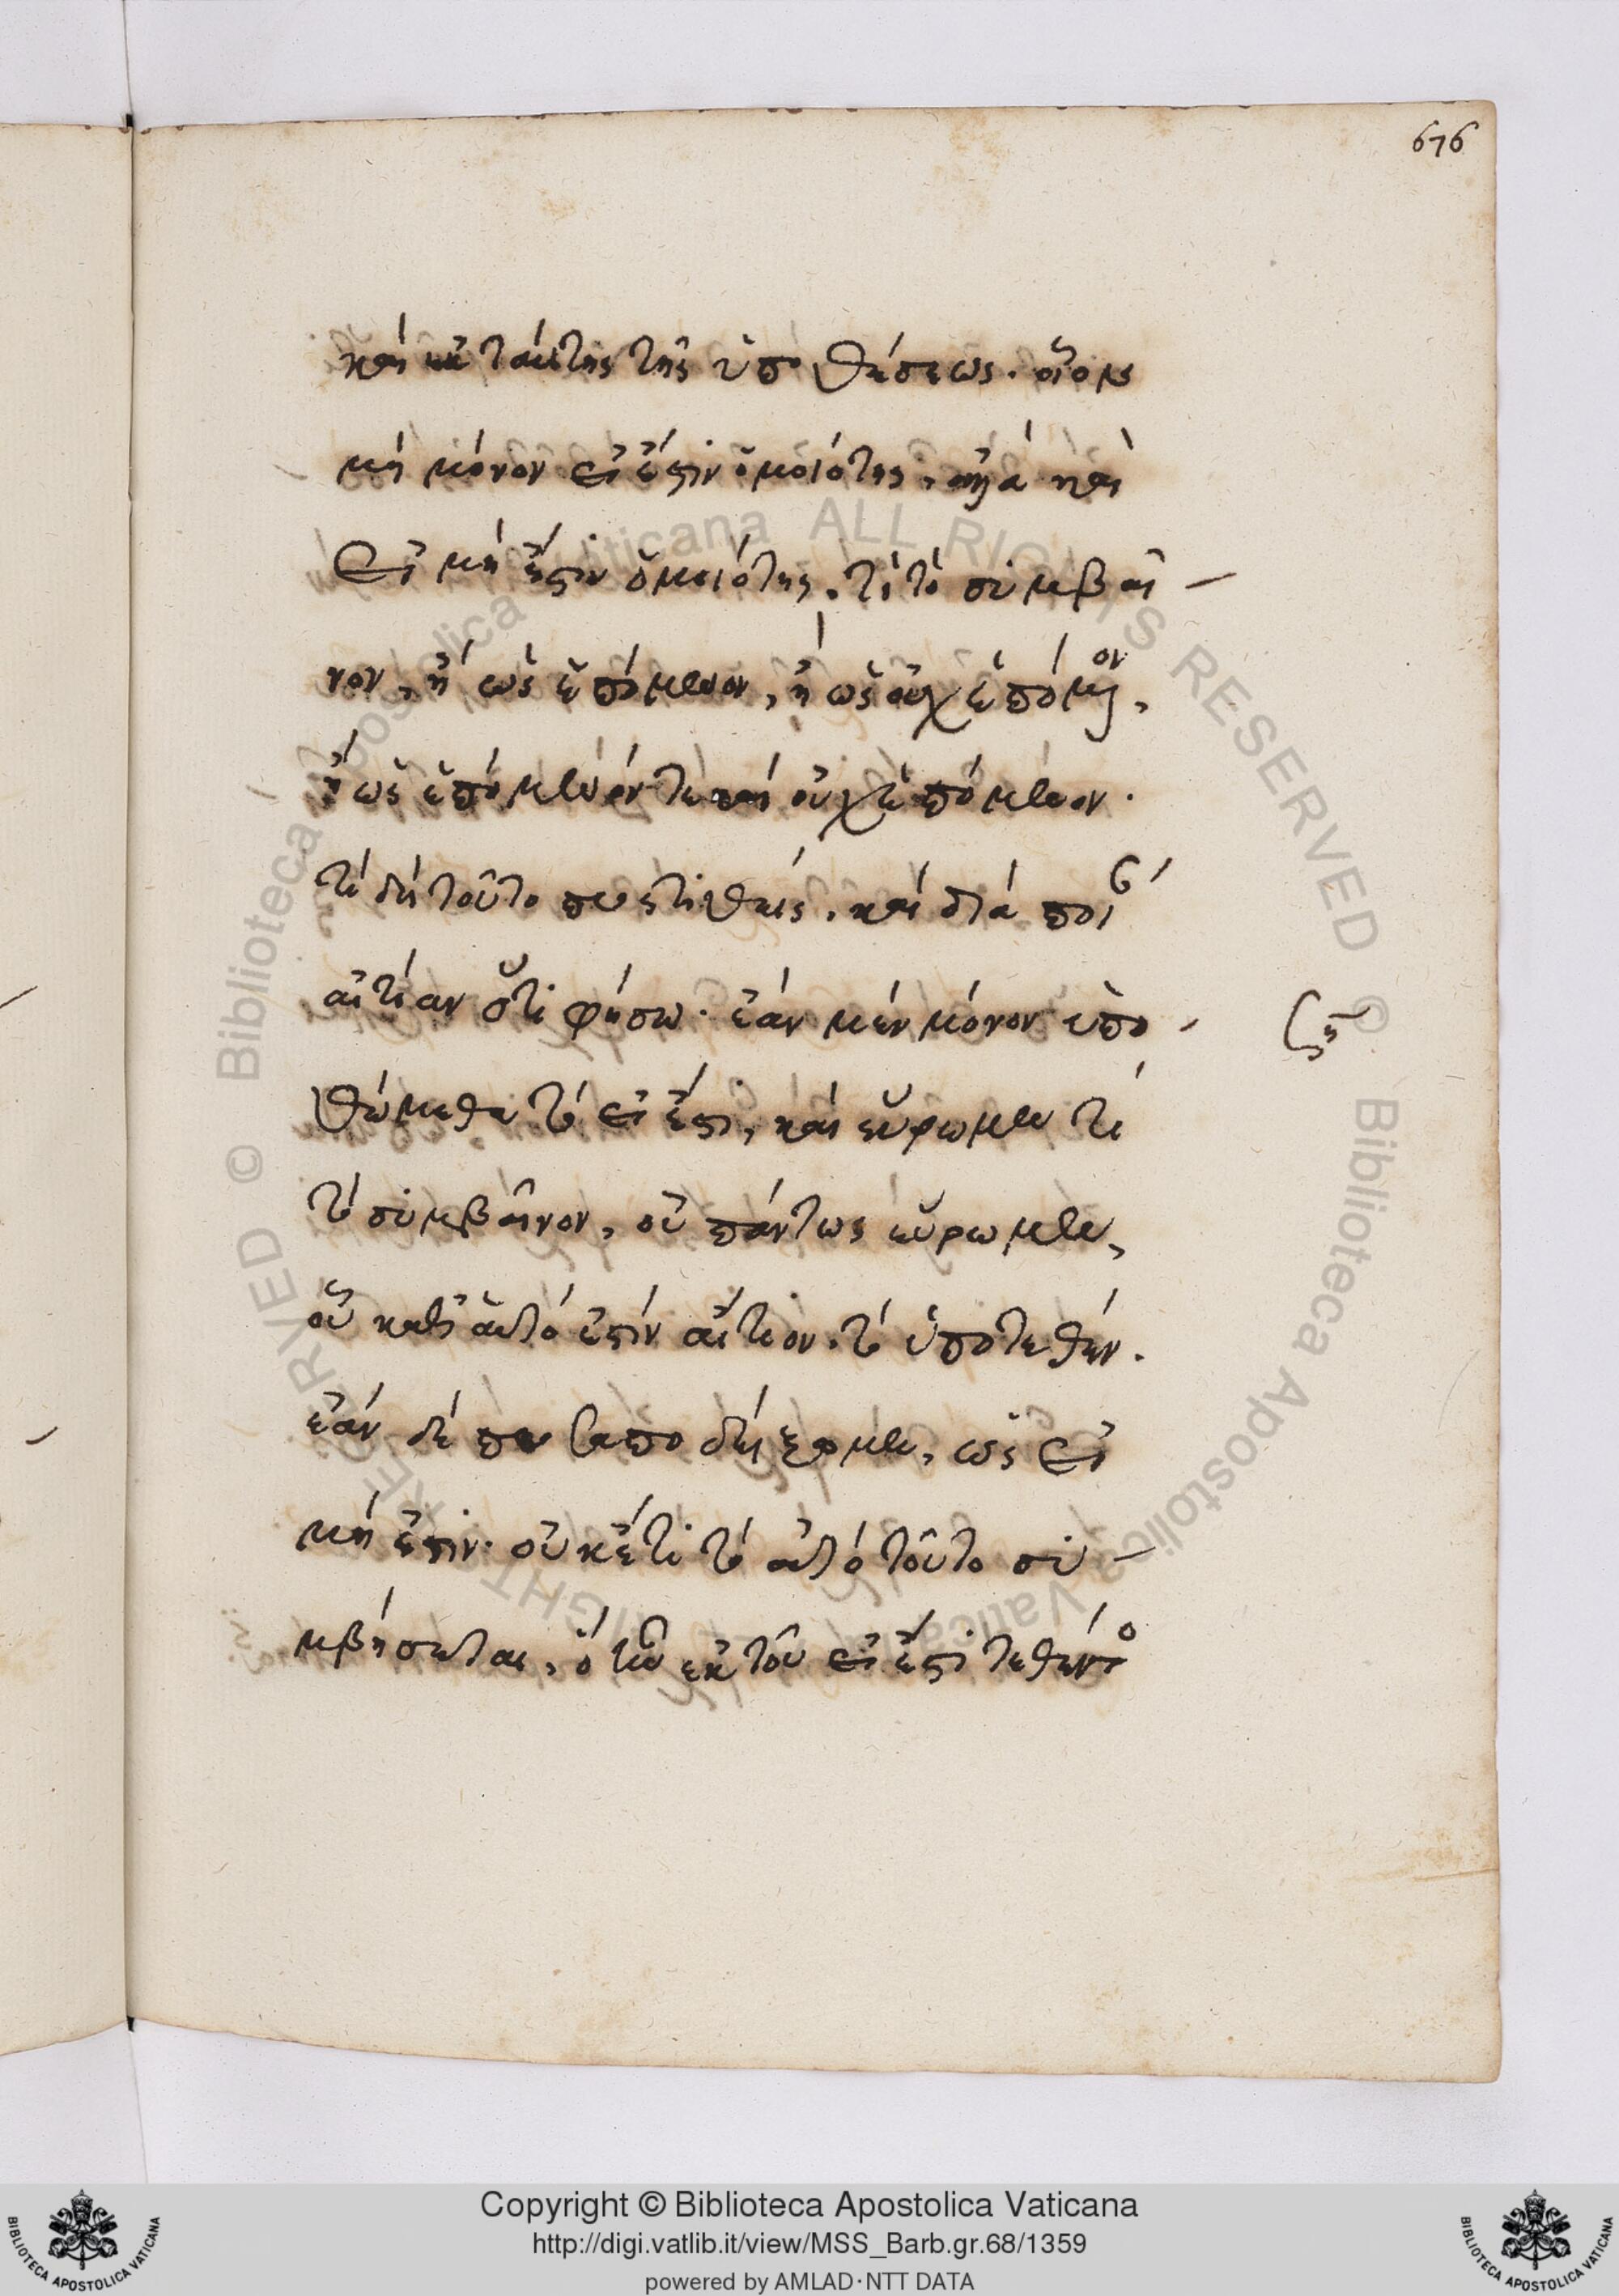 676
καὶ ἐκ ταύτης τῆς ὑποθέσεως. οἷον
μὴ μόνον εἰ ἔστιν ὁμοιότης, ἀλλὰ καὶ
εἰ μὴ ἔστιν ὁμοιότης. τί τὸ συμβαῖ –
νον, ἢ ὡς ἑπόμενον, ἢ ὡς οὐχ ἑπόμενον,
ἢ ὡς ἑπόμενόν τε καὶ οὐχ ἑπόμενον.
τί δὴ τοῦτο προστιθείς. καὶ διὰ ποίαν
αἰτίαν ὅτι φήσω. ἐὰν μὲν μόνον ὑπο –
θώμεθα τὸ εἰ ἔστι, καὶ εὕρωμεν τί
τὸ συμβαῖνον, οὐ πάντως εὕρωμεν,
οὗ καθ' αὑτό ἐστιν αἴτιον. τὸ ὑποτεθέν.
ἐὰν δὲ προσαποδείξομεν, ὡς εἰ
μὴ ἔστιν. οὐκέτι τὸ αὐτὸ τοῦτο συ –
μβήσεται, ὃ ἦν ἐκ τοῦ εἰ ἔστι τεθέντος
Copyright © Biblioteca Apostolica Vaticana
http://digi.vatlib.it/view/MSS_Barb.gr.68/1359
powered by AMLAD·NTT DATA
BIBLIOTECA APOSTOLICA VATICANA
BIBLIOTECA APOSTOLICA VATICANA